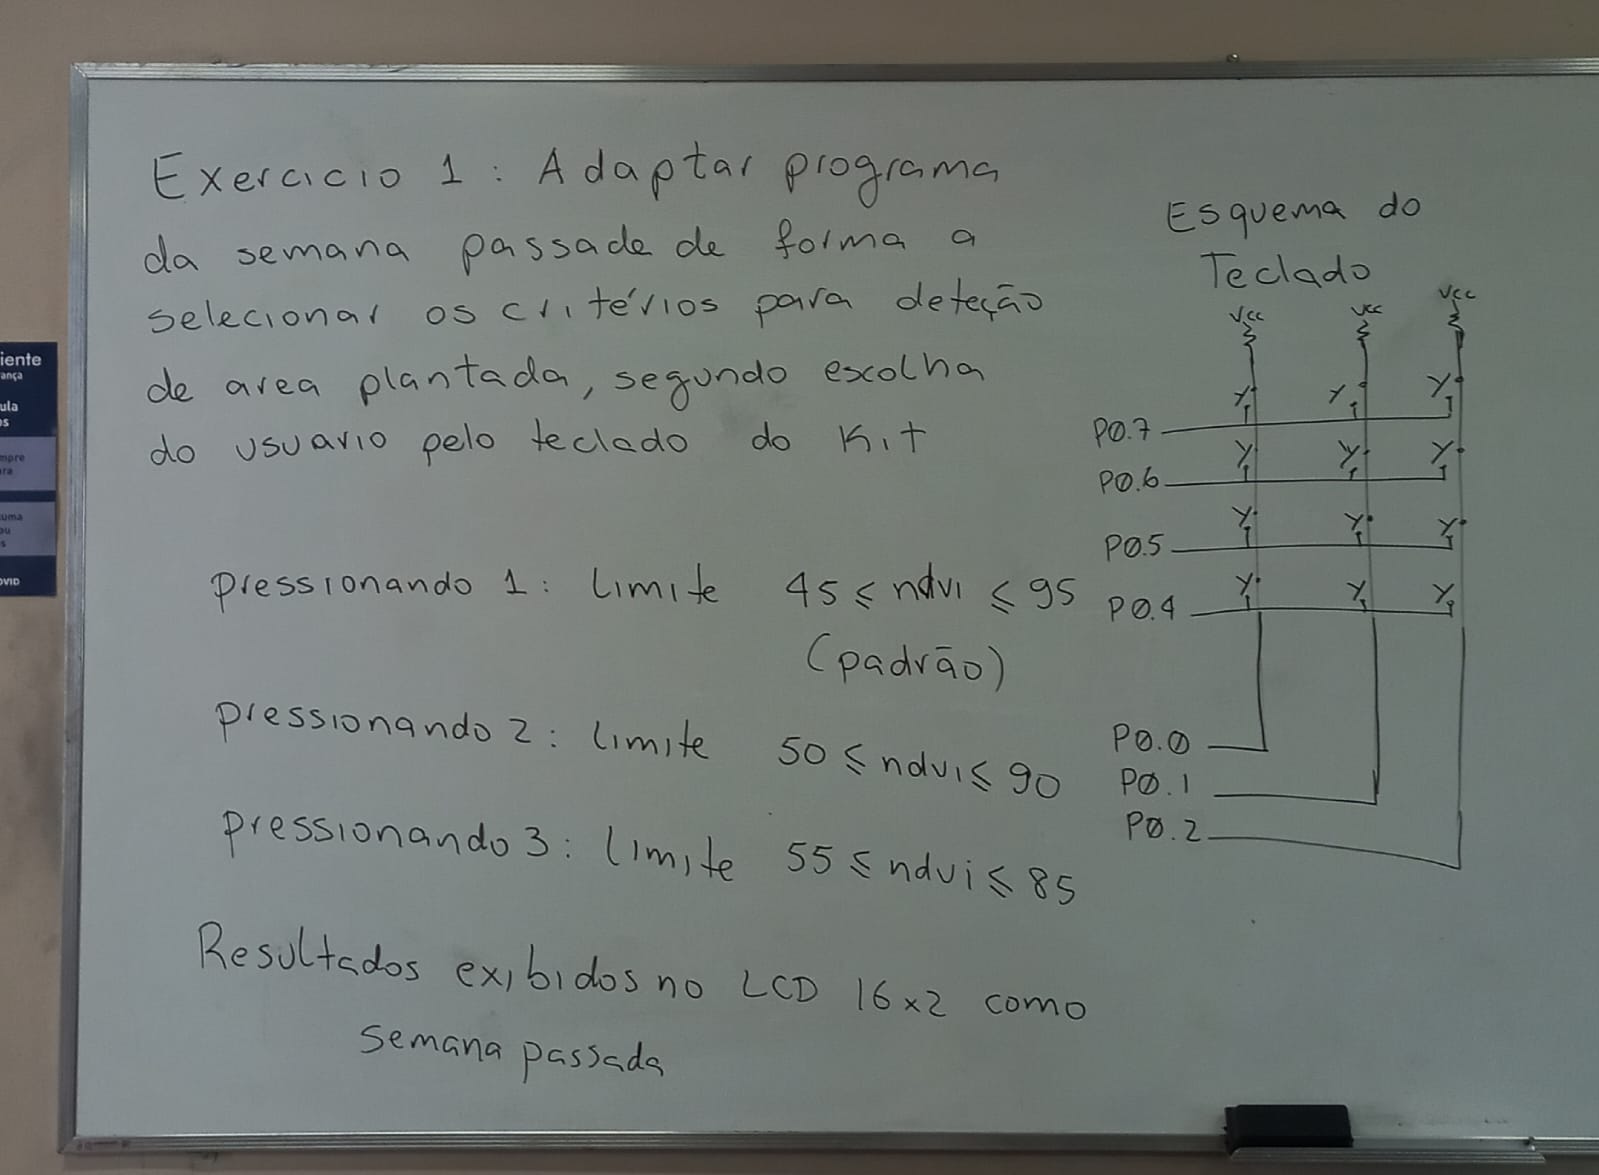 iente
ança
ula
os
mpre
ra
uma
ou
s
OVID
Exercicio 1: Adaptar programa
da semana passada de forma a
selecionar os critérios para deteção
de area plantada, segundo escolha
do usuario pelo teclado do Kit
pressionando 1: limite 45 ≤ ndvi ≤ 95
(padrão)
pressionando 2: limite 50 ≤ ndvi ≤ 90
pressionando 3: limite 55 ≤ ndvi ≤ 85
Resultados exibidos no LCD 16x2 como
semana passada
Esquema do
Teclado
Vcc Vcc Vcc
P0.7
P0.6
P0.5
P0.4
P0.0
P0.1
P0.2